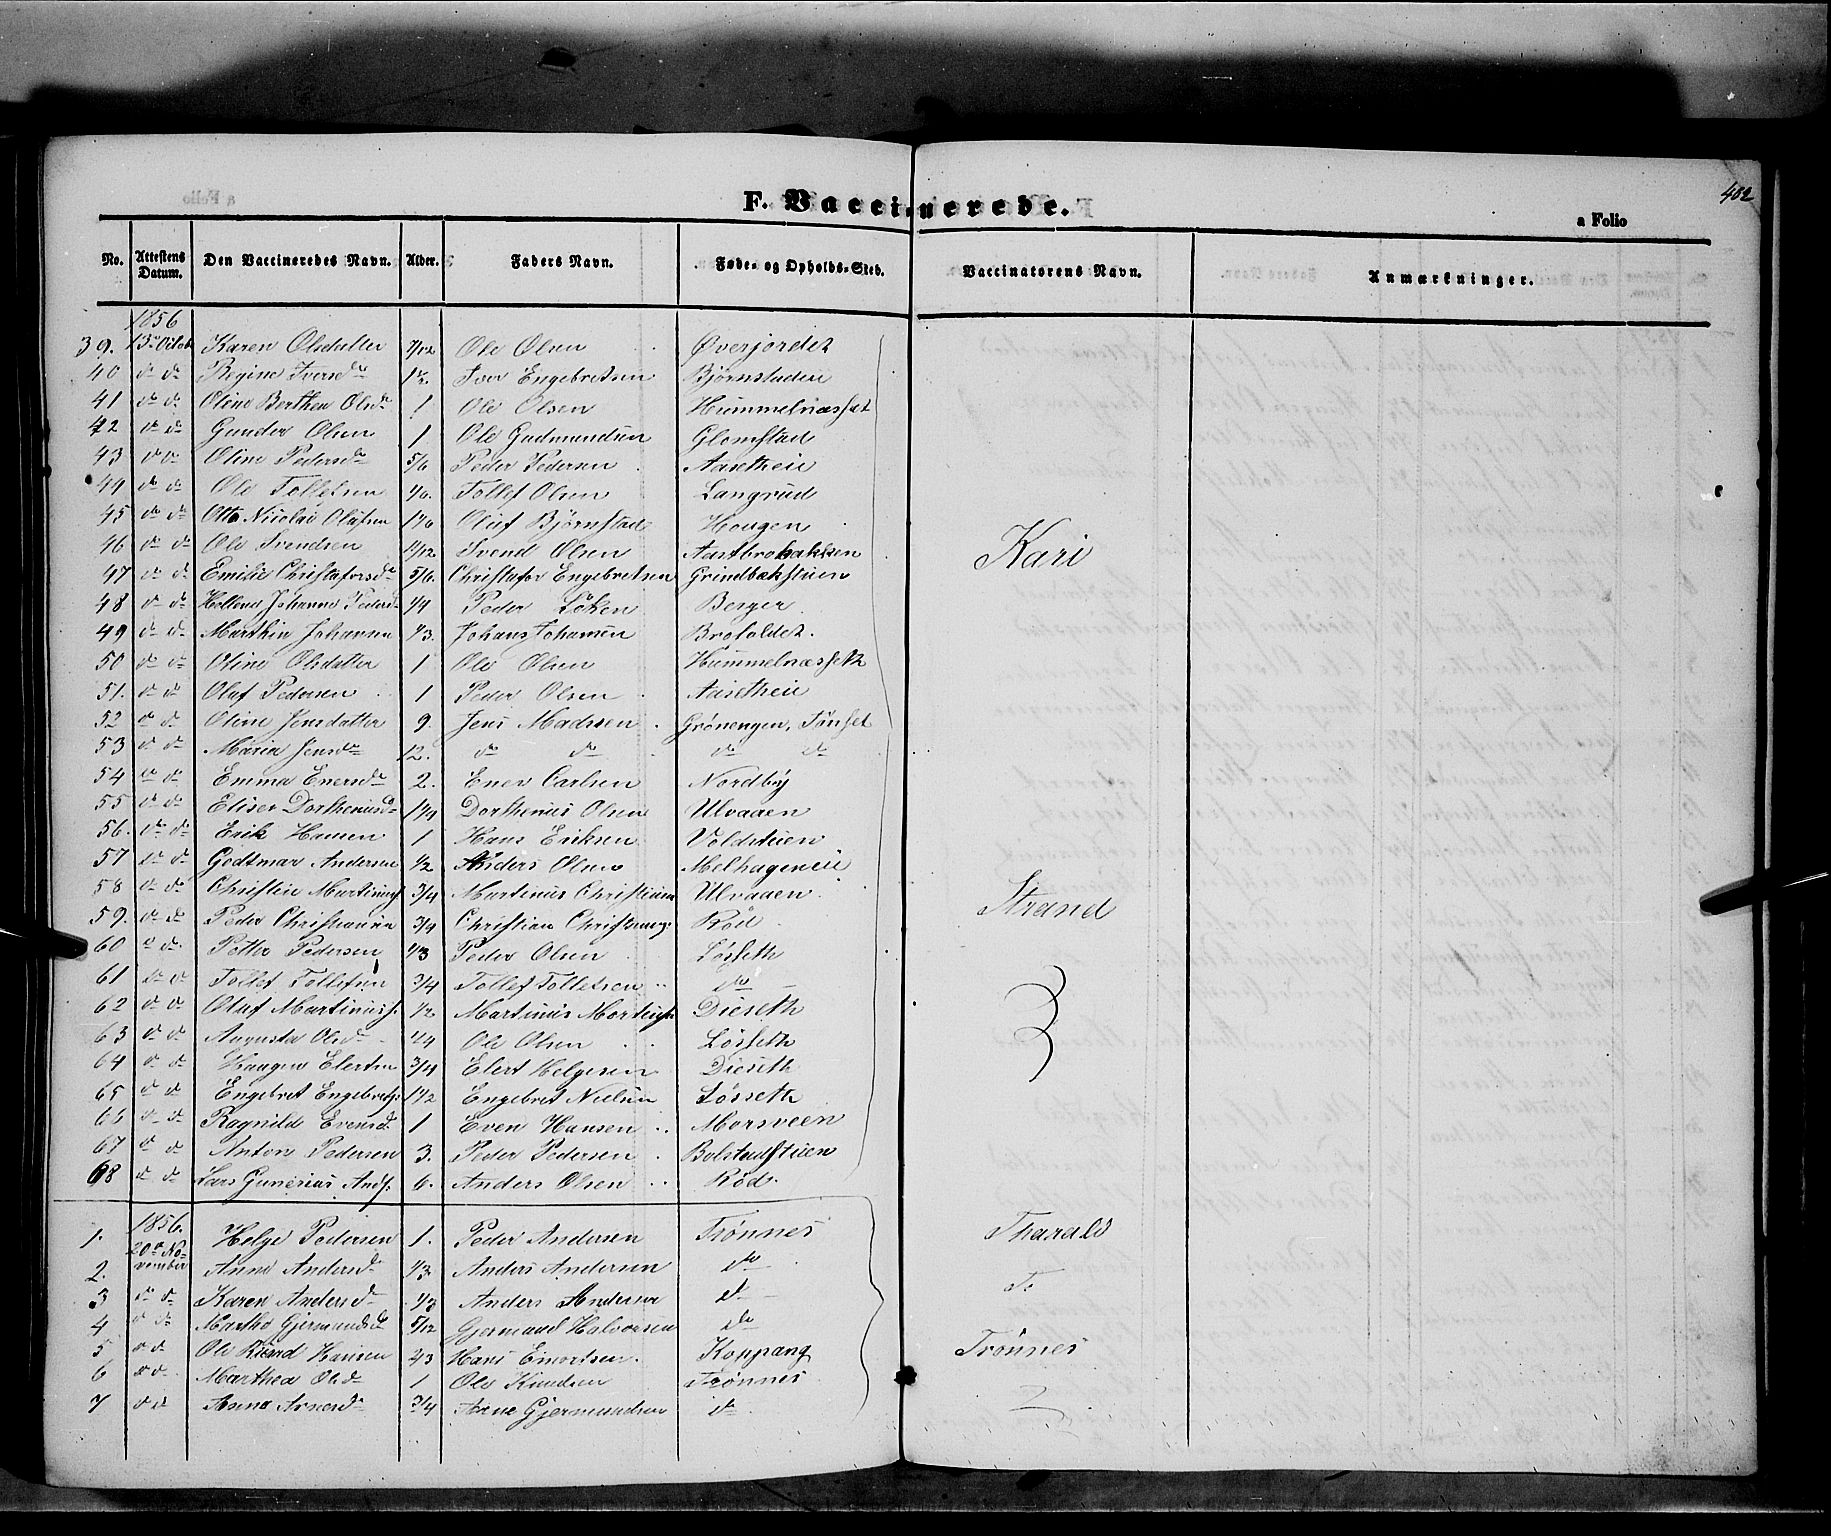 402
F. Vaccinerede.
a Folio
No. Attestens Datum. Den Vaccineredes Navn. Alder. Faders Navn. Føde- og Opholds-Sted. Vaccinatorens Navn. Anmærkninger.
1856
39. 13de Octob Karen Olsdatter 7/12 Ole Olsen Øverjordet
40 do do Regine Iversdr 1½ Iver Engebretsen Bjørnstaden
41 do do Oline Berthea Olsdr 1 Ole Olsen Hummelnæsset
42 do do Gunder Olsen 1 Ole Gudmundsen Glomstad
43 do do Oline Pedersdr 5/6 Peder Pedersen Aasetheie
44 do do Ole Tollefsen Tollef Olsen Langrud
45 do do Otto Nicolai Olafsen Oluf Bjørnstad Hougen
46 do do Ole Svendsen 11/12 Svend Olsen Aastbrobakken
Kari
47 do do Emilie Christofersdr 5/6. Christofor Engebretsen Grindbækstuen
48 do do Hellena Johanne Pedersdr 1/4 Peder Löken Berger
49 do do Marthin Johansen 1/3. Johans Johansen Brofoldet.
50 do do Oline Olsdatter 1 Ole Olsen Hummelnæsset
51. do do Oluf Pedersen 1 Peder Olsen Aasetheie
52 do do Oline Jensdatter 9. Jens Madssen Grönengen, Tönset
53 do do Maria Jensdr 12. do do do do
54 do do Emma Enersdr 2. Ener Carlsen Nordby
55 do do Eliser Dorthenusd 1¼ Dorthenus Olsen Ulvaaen
56. do do Erik Hansen 1 Hans Eriksen Voldstuen
57 do do Godtmar Andersen 1/2 Anders Olsen Melhageneie
58 do do Christin Martinus 3/4 Martinus Christiansen Ulvaaen
Strand
59. do do Peder Christiansen 3/4 Christian Christians Röd
60 do do. Petter Pedersen 1/3 Peder Olsen Løsseth
61 do do Tollef Tollefsen 3/4 Tollef Tollefsen do
62 do do Oluf Martinuss. 1/2 Martinus Mortens Dieseth
63 do do Augusta Olsd 1/4 Ole Olsen Løsseth
64 do do Haagen Elertsen 3/4 Elert Helgesen Dieseth
65 do do Engebret Engebrets 1½ Engebret Nielsen Løsseth
66 do do Ragnild Evensdr 1 Even Hansen Morsveen
67 do do Anton Pedersen 3. Peder Pedersen Bolstadstuen
68 do do Lars Gunerius Ands. 6. Anders Olsen Röd.
1856.
1. 20de November Helge Pedersen 1. Peder Andersen Trønnes
Tharald
2. Anne Andersdr 1/3. Anders Andersen do
T.
3 do do Karen Andersdr 1/3 Anders Andersen do
4 do do Marthe Gjermundsdr 5/12 Gjermund Halvorsen do
5 do do Ole Hansen 2/3 Hans Koppang
Trönnes
6 do do Marthea Olsdr 1 Ole Knudsen Trönnes
7 do do Anna Arnesdr 3/4 Arne Gjermundsen do